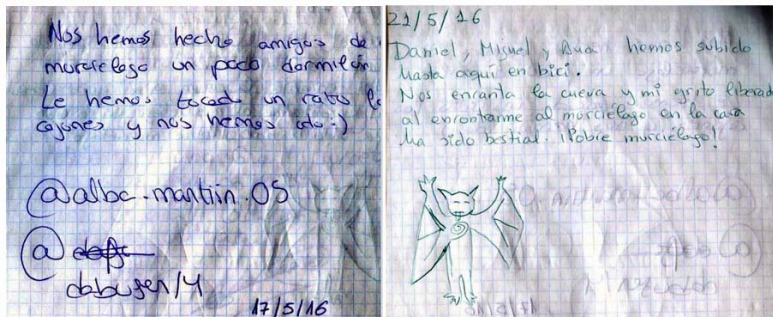 Nos hemos hecho amigos de
murciélago un poco dormilón
Le hemos tocado un rato lo
cojones y nos hemos ido :)
@alba.martiin.05
@
dabugen14
17/5/16
21/5/16
Daniel, Miguel y Ana hemos subido
hasta aquí en bici.
Nos encanta la cueva y mi grito liberado
al encontarme al murciélago en la cara
ha sido bestial. ¡Pobre murciélago!